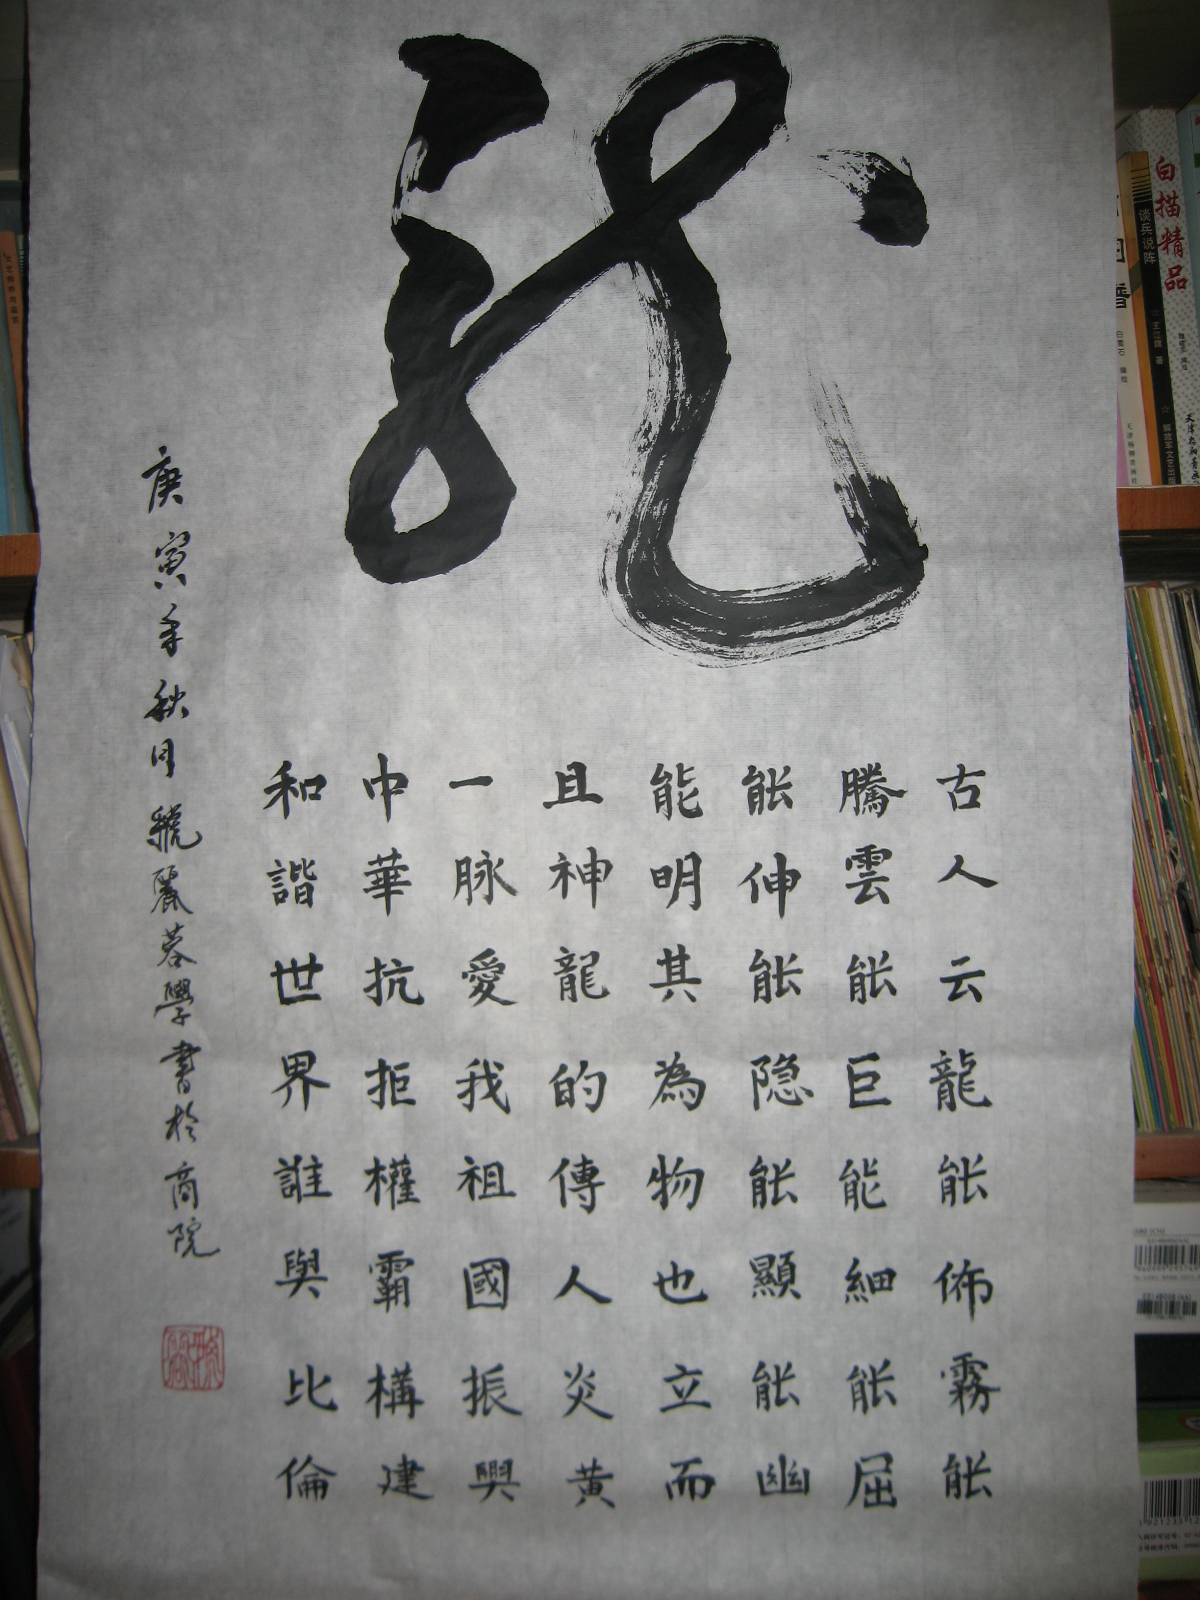 龍
古人云龍能佈霧能
騰雲能巨能細能屈
能伸能隐能顯能幽
能明其為物也立而
且神龍的傳人炎黄
一脉愛我祖國振興
中華抗拒權霸構建
和諧世界誰與比倫
庚寅年秋月 麗蓉學書於商院
白描精品
谈兵说阵
☆王江旗 著
☆解放军文艺出版
白雪石 编绘